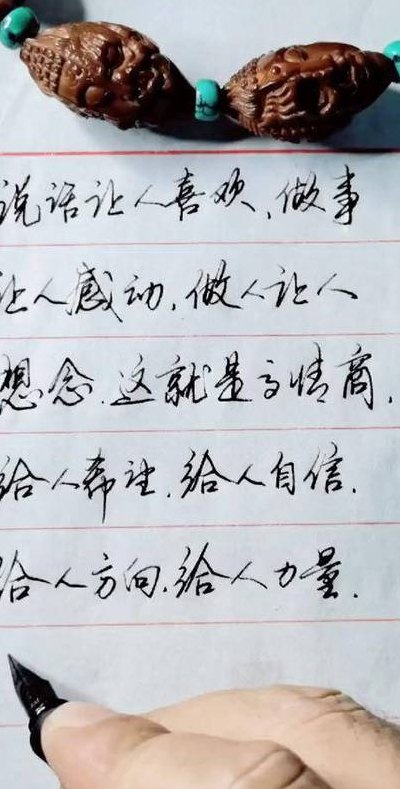 说话让人喜欢、做事
让人感动,做人让人
想念.这就是高情商,
给人希望,给人自信.
给人方向,给人力量.